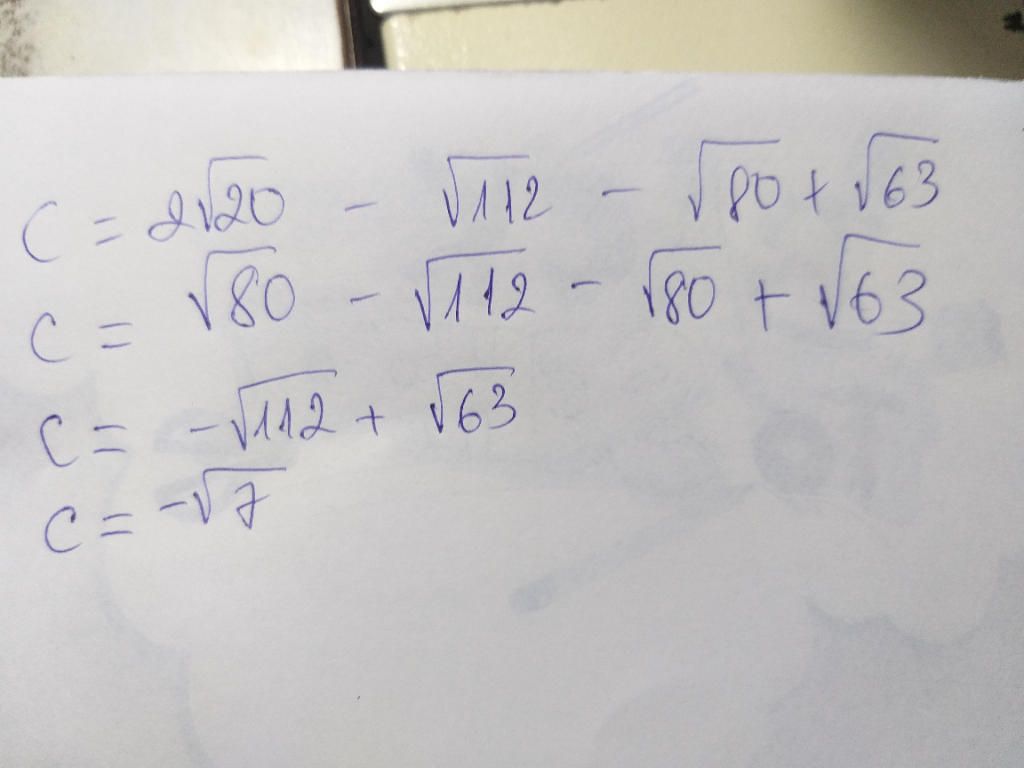 C = 2√20 - √112 - √80 + √63
C = √80 - √112 - √80 + √63
C = -√112 + √63
C = -√7